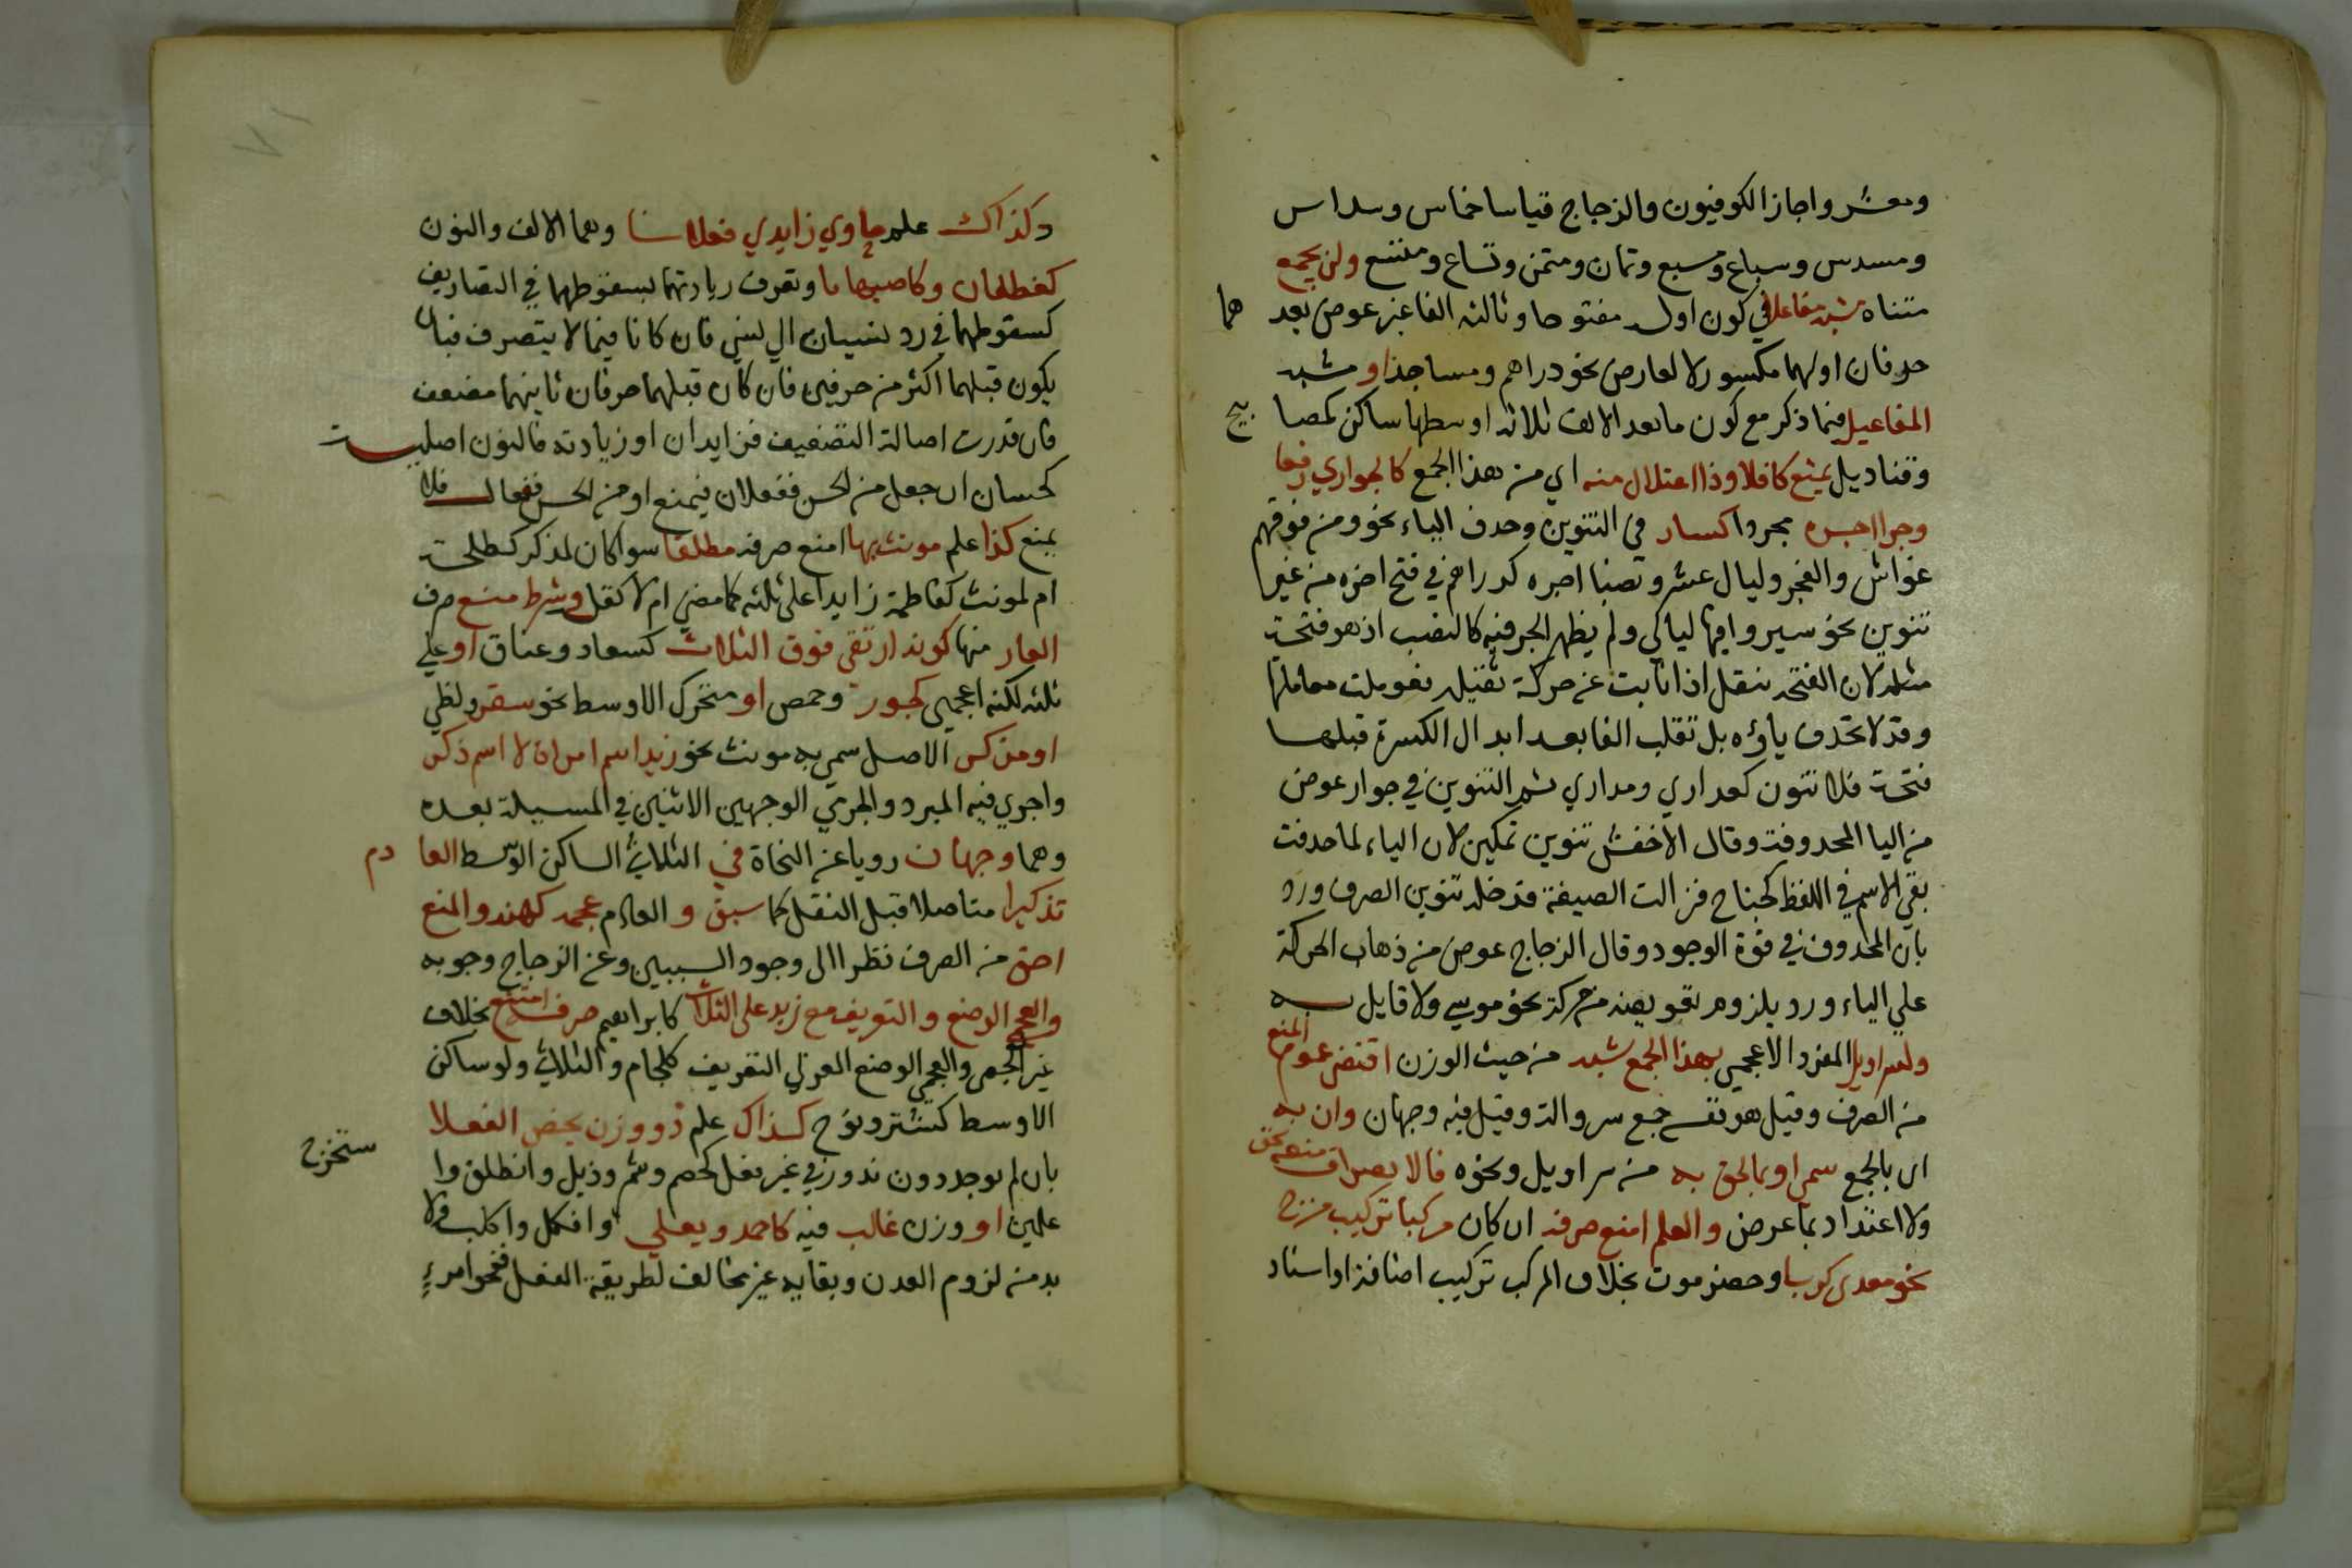 ومعشر واجاز الكوفيون والزجاج قياسا خماس وسداس
ومسدس وسباع ومسبع وثمان ومثمن وتساع ومتسع ولن يجمع
متناه شبه مفاعلا في كون اوله مفتوحا وثالثه الفا غير عوض بعدهما
حرفان اولهما مكسور لا لعارض نحو دراهم ومساجد او مشبه
المفاعيل فيما ذكر مع كون ما بعد الالف ثلاثة اوسطها ساكن كمصابيح
وقناديل بمنع كافلا وذا اعتلال منه اي من هذا الجمع كالجواري رفعا
وجرا اجره مجرد اكسار في التنوين وحذف الياء نحو ومن فوقهم
غواش والفجر وليال عشر ونصبا اجره كدراهم في فتح اخره من غير
تنوين نحو سيروا فيها ليالي ولم يظهر الجر فيه كالنصب اذ هو فتحة
مثله لان الفتحة تثقل اذا نابت عن حركة ثقيلة فعوملت معاملتها
وقد لا تحذف ياؤه بل تقلب الفا بعد ابدال الكسرة قبلها
فتحة فلا تنون كعذاري ومداري ثم التنوين في جوار عوض
من اليا المحذوفة وقال الاخفش تنوين تمكين لان الياء لما حذفت
بقي الاسم في اللفظ كجناح فزالت الصيغة فدخله تنوين الصرف ورد
بان المحذوف في قوة الوجود وقال الزجاج عوض من ذهاب الحركة
علي الياء ورد بلزوم تعويضه من حركة نحو موسي ولا قايل به
ولسراويل المفرد الاعجمي بهذا الجمع شبه من حيث الوزن اقتضي عموم المنع
من الصرف وقيل هو نفسه جمع سروالة وقيل فيه وجهان وان به
اي بالجمع سمي او بما لحق به من سراويل ونحوه فالانصراف منعه يحق
ولا اعتداد بما عرض والعلم امنع صرفه ان كان مركبا تركيب مزج
نحو معدي كربا وحضرموت بخلاف المركب تركيب اضافة او اسناد
وكذاك علم حاوي زايدي فعلانا وهما الالف والنون
كغطفان وكاصبهانا وتعرف زيادتهما بسقوطهما في التصاريف
كسقوطهما في رد نسيان الي نسي فان كانا فيما لا يتصرف فبان
يكون قبلهما اكثر من حرفين فان كان قبلهما حرفان ثانيهما مضعف
فان قدرت اصالة التضعيف فزايدان او زيادته فالنون اصلية
كحسان ان جعل من الحس ففعلان فيمنع او من الحسن ففعال فلا
يمنع كذا علم مونث بهاا امنع صرفه مطلقا سوا كان لمذكر كطلحة
ام لمونث كفاطمة زايدا علي ثلثة كما مضي ام لا كقلة وشرط منع صرف
العار منها كونه ارتقي فوق الثلاث كسعاد وعناق او علي
ثلثة لكنه اعجمي كجور وحمص او متحرك الاوسط نحو سقر ولظي
او مذكر الاصل سمي به مونث نحو زيد اسم امراة لا اسم ذكر
واجري فيه المبرد والجرمي الوجهين الاتيين في المسيلة بعده
وهما وجهان رويا عن النحاة في الثلاثي الساكن الوسط العادم
تذكيرا متاصلا قبل النقل كما سبق والعادم عجمة كهند والمنع
احق من الصرف نظرا الي وجود السببين وعن الزجاج وجوبه
والعجمي الوضع والتعريف مع زيد علي الثلاث كابراهيم صرفه امتنع بخلاف
غير العجمي والعجمي الوضع العربي التعريف كلجام والثلاثي ولو ساكن
الاوسط كشتر ونوح كذاك علم ذو وزن يخص الفعلا
بان لم يوجد دون ندور في غير فعل كخضم وشمر وذيل وانطلق واستخرج
علمين او وزن غالب فيه كاحمد ويعلي وافكل واكلب ولا
بد من لزوم الوزن وبقايه غير مخالف لطريقة الفعل فنحو امرء